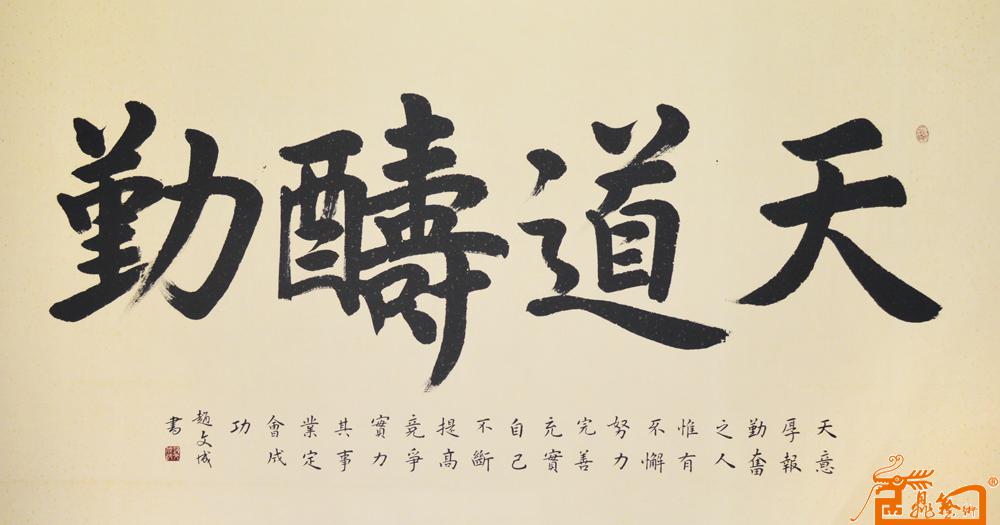 天道醻勤
天意
厚報
勤奮
之人
惟有
不懈
努力
完善
充實
自己
不斷
提高
竞爭
實力
其事
業定
會成
功
趙文成
書